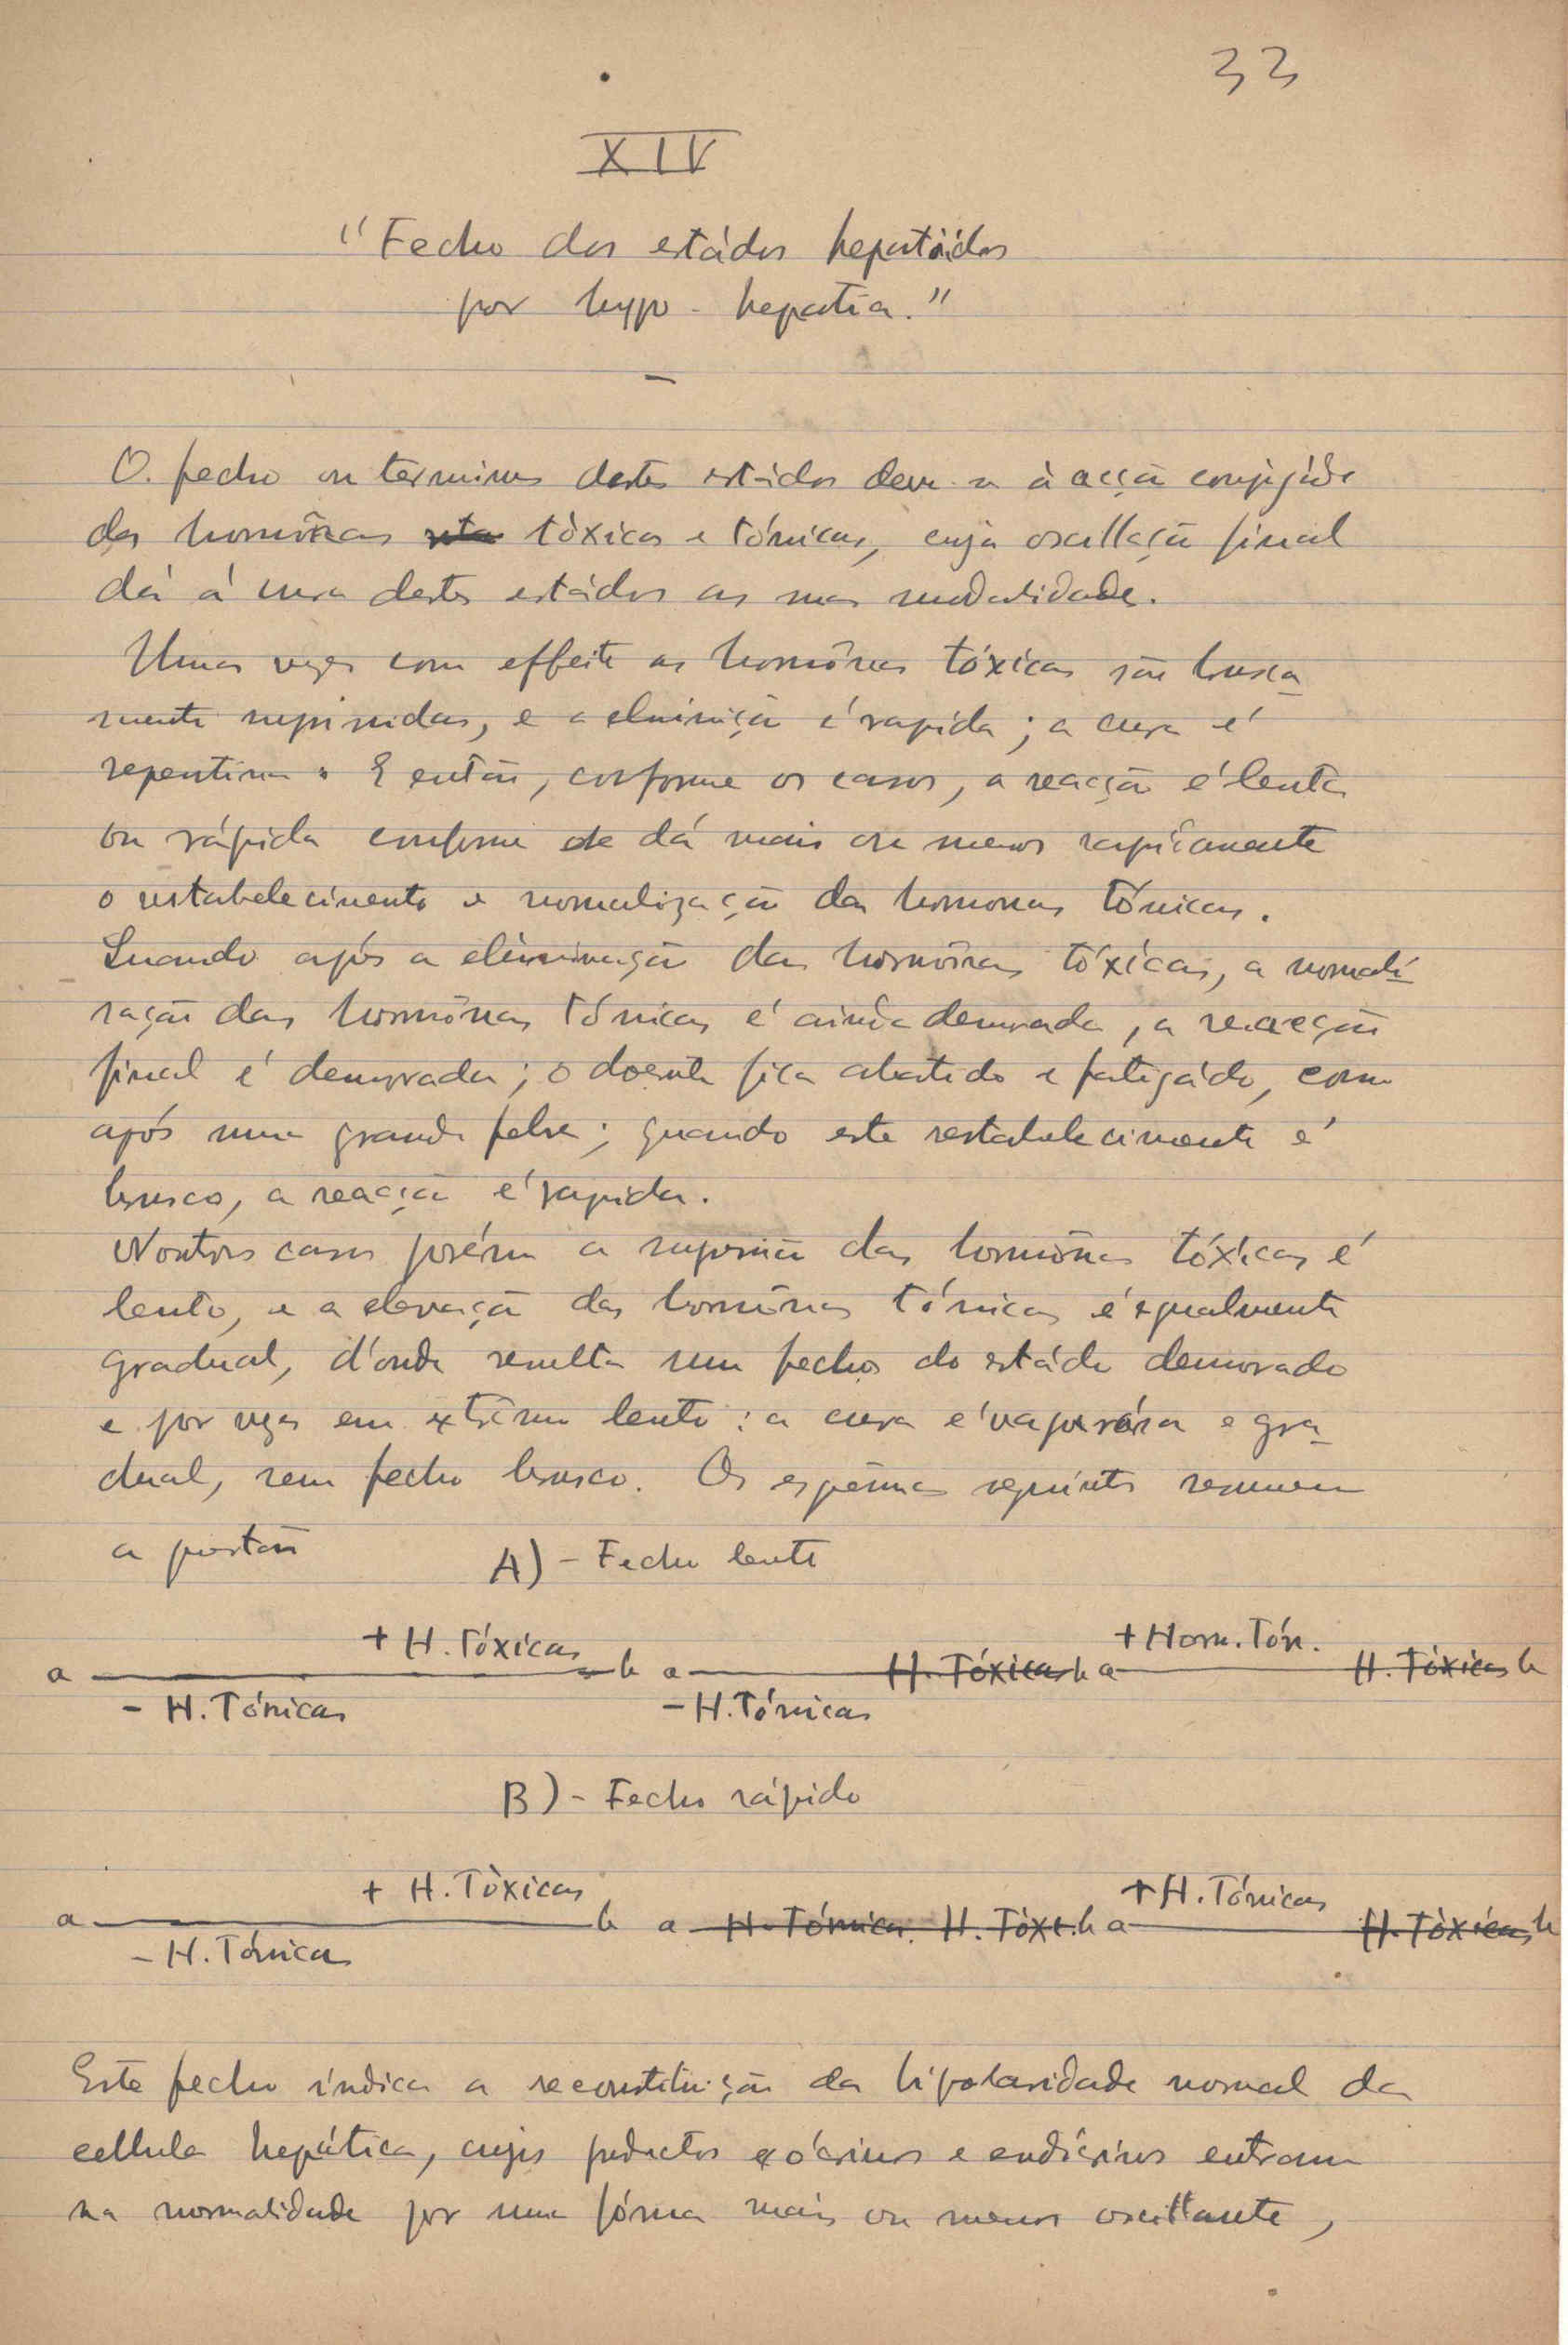 33
XIV
"Fecho dos estádos hepatóidos
por hypo-hepatia."
O fecho ou terminus destes estádos deve-se à acção conjugáda
das hormônas tóxicas e tónicas, cuja oscillação final
dá á cura destes estádos as suas modalidades.
Umas vezes com effeito as hormônas tóxicas são brusca-
mente suprimidas, e a eliminação é rapida; a cura é
repentina. E então, conforme os casos, a reacção é lenta
ou rápida conforme se dá mais ou menos rapidamente
o restabelecimento e normalização das hormonas tónicas.
Quando após a eliminação das hormônas tóxicas, a normali-
zação das hormônas tónicas é ainda demorada, a reacção
final é demorada; o doente fica abatido e fatigádo, como
após uma grande febre; quando este restabelecimento é
brusco, a reacção é rapida.
Noutros casos porém a supressão das hormônas tóxicas é
lento, e a elevação das hormônas tónicas é egualmente
gradual, d'onde resulta um fecho do estádo demorado
e por vezes em extrêmo lento: a cura é vaporósa e gra-
dual, sem fecho brusco. Os esquêmas seguintes resumem
a questão
A) - Fecho lento
+ H. Tóxicas + Horm. Tón.
a b a H. Tóxicas b a H. Tóxicas b
- H. Tónicas - H. Tónicas
B) - Fecho rápido
+ H. Tòxicas + H. Tónicas
a b a H. Tónica. H. Tòxi. b a H. Tòxicas b
- H. Tónicas
Este fecho indica a reconstituição da bipolaridade normal da
cellula hepática, cujos productos exócrinos e endócrinos entram
na normalidade por uma fórma mais ou menos oscillante,